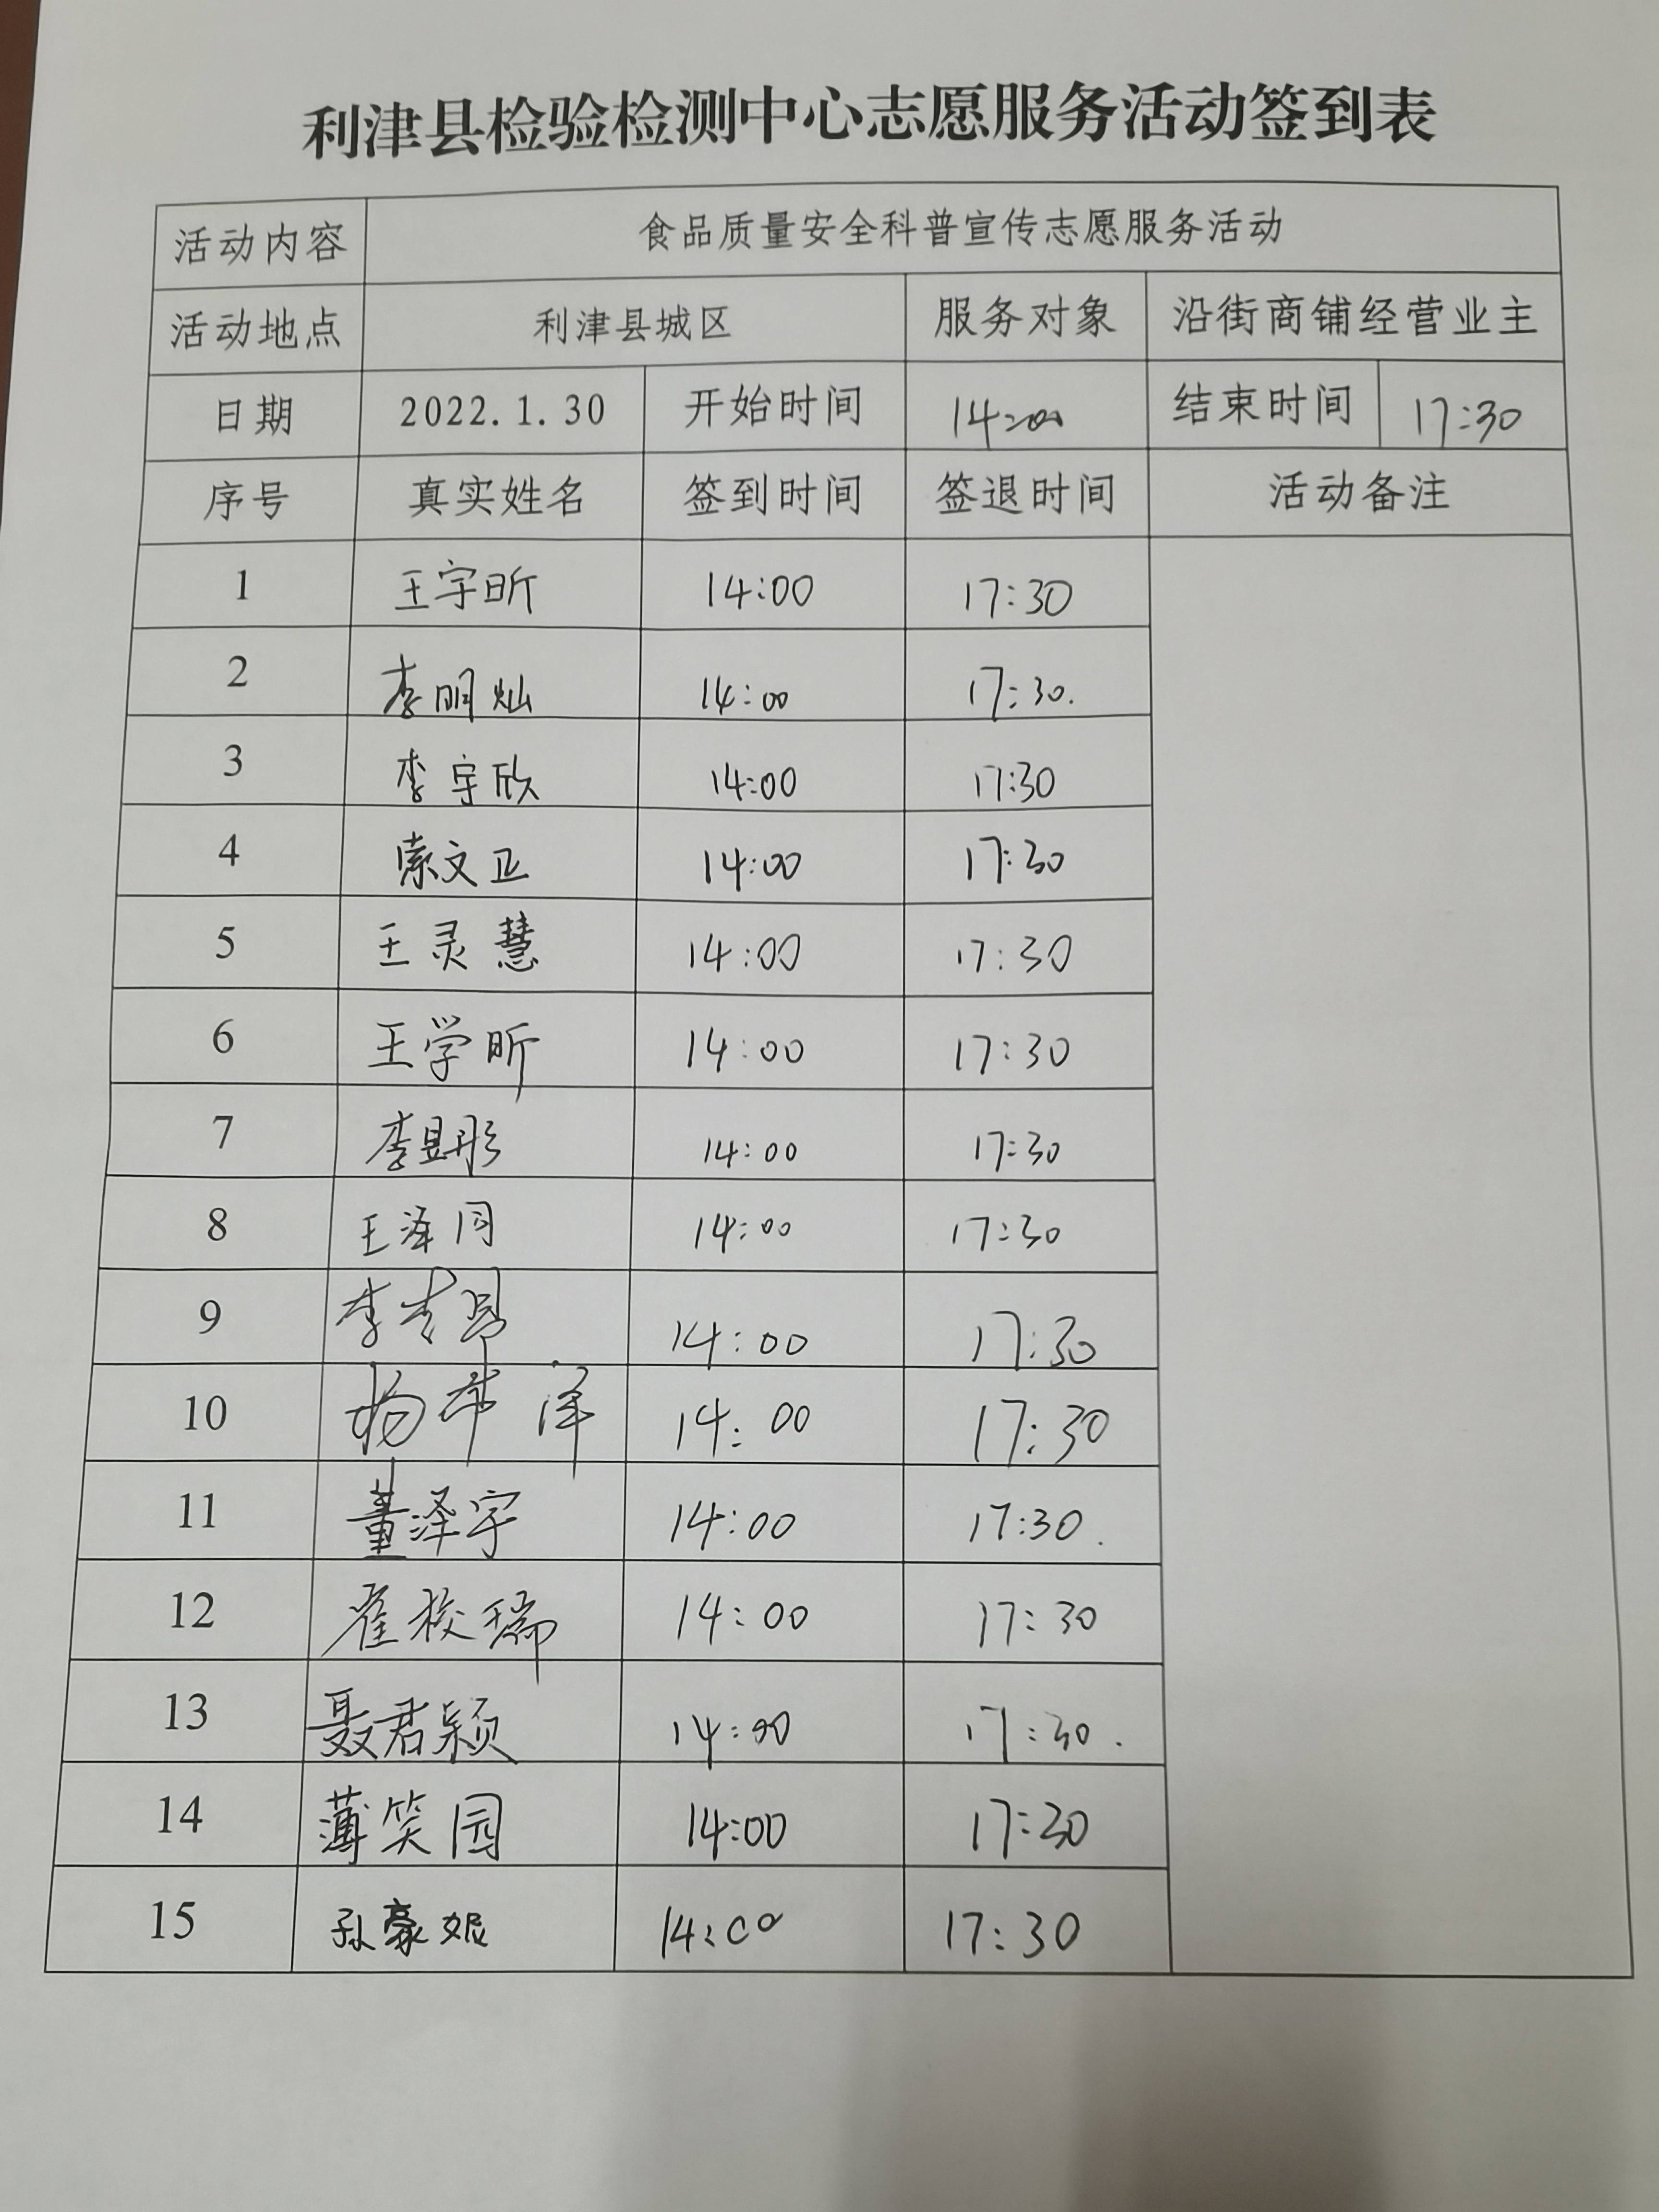 利津县检验检测中心志愿服务活动签到表
活动内容 食品质量安全科普宣传志愿服务活动
活动地点 利津县城区 服务对象 沿街商铺经营业主
日期 2022.1.30 开始时间 14:00 结束时间 17:30
序号 真实姓名 签到时间 签退时间 活动备注
1 王宇昕 14:00 17:30
2 李明灿 14:00 17:30.
3 李宇欣 14:00 17:30
4 索文正 14:00 17:30
5 王灵慧 14:00 17:30
6 王学昕 14:00 17:30
7 李昱彤 14:00 17:30
8 王泽同 14:00 17:30
9 李 14:00 17:30
10 杨 洋 14:00 17:30
11 董泽宇 14:00 17:30.
12 崔校瑞 14:00 17:30
13 聂君颖 14:00 17:30.
14 薄笑园 14:00 17:30
15 孙豪妮 14:00 17:30